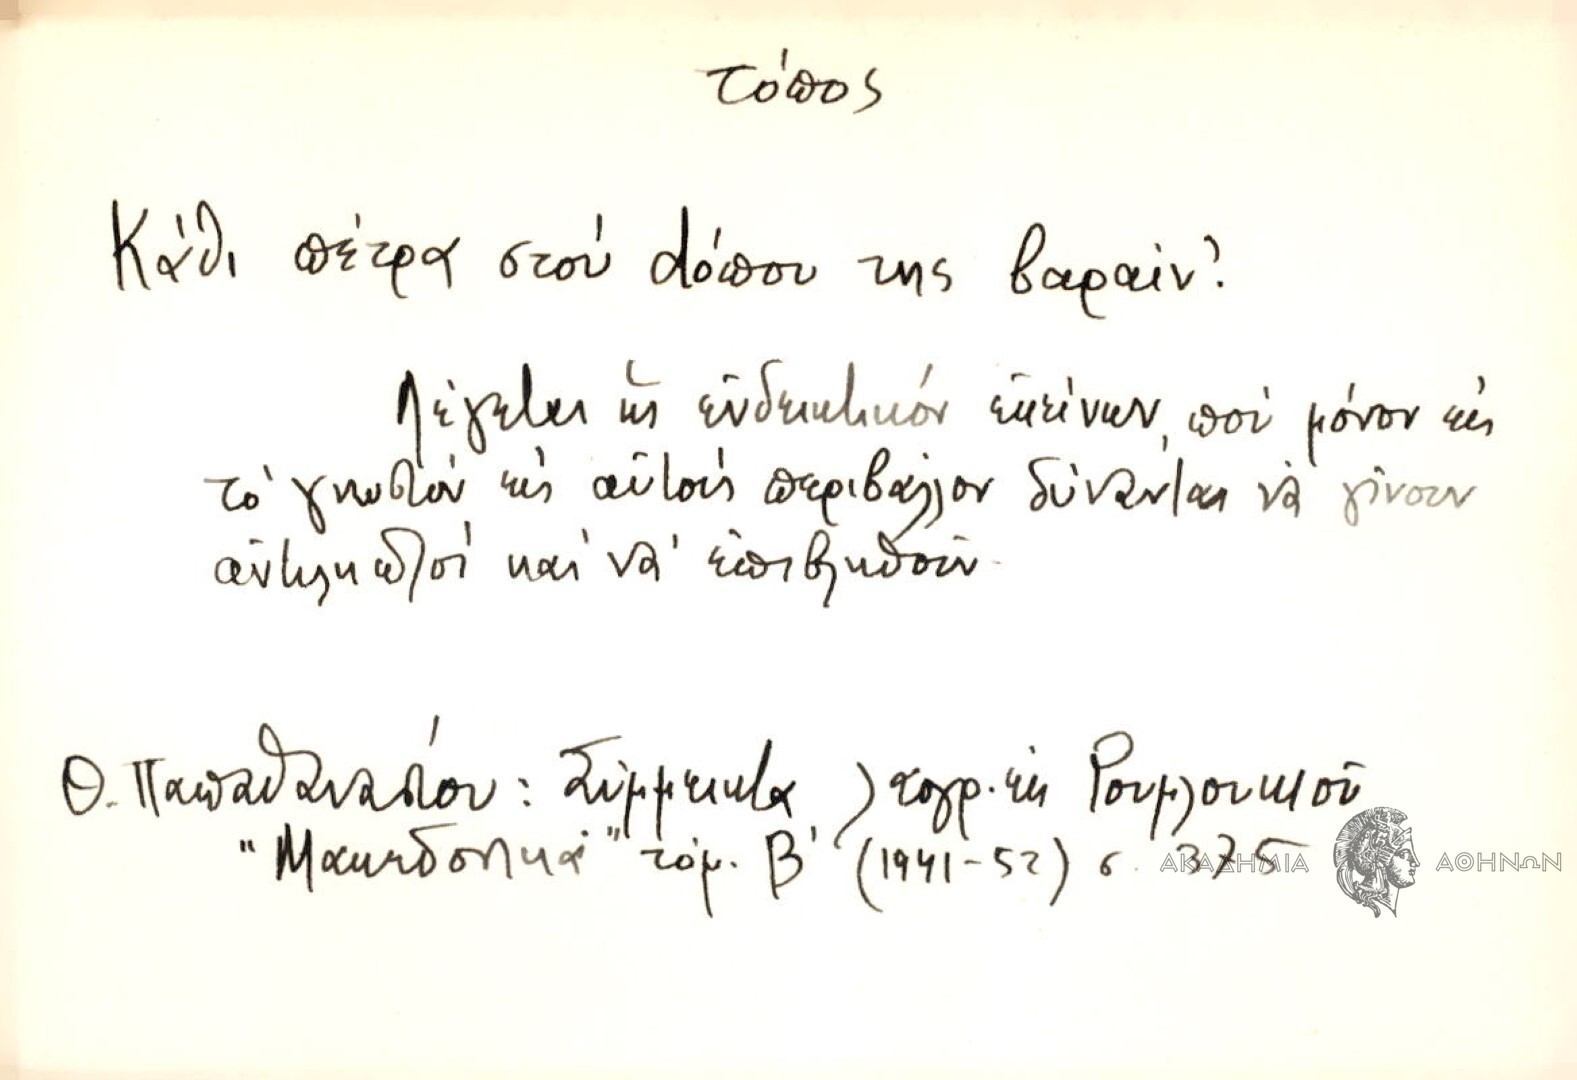 τόπος
Κάθι πέτρα στού dόπου της βαραίν'.
Λέγεται ὡς ἐνδεικτικόν ἐκείνων, πού μόνον εἰς
τό γνωστόν εἰς αὐτούς περιβάλλον δύνανται νά γίνουν
ἀντιληπτοί καί νά ἐπιβληθοῦν.
Θ. Παπαθανασίου: Σύμμεικτα λαογρ. ἐκ Ρουμλουκιοῦ
"Μακεδονικά" τόμ. Β' (1941-52) σ. 375
ΑΚΑΔΗΜΙΑ ΑΘΗΝΩΝ